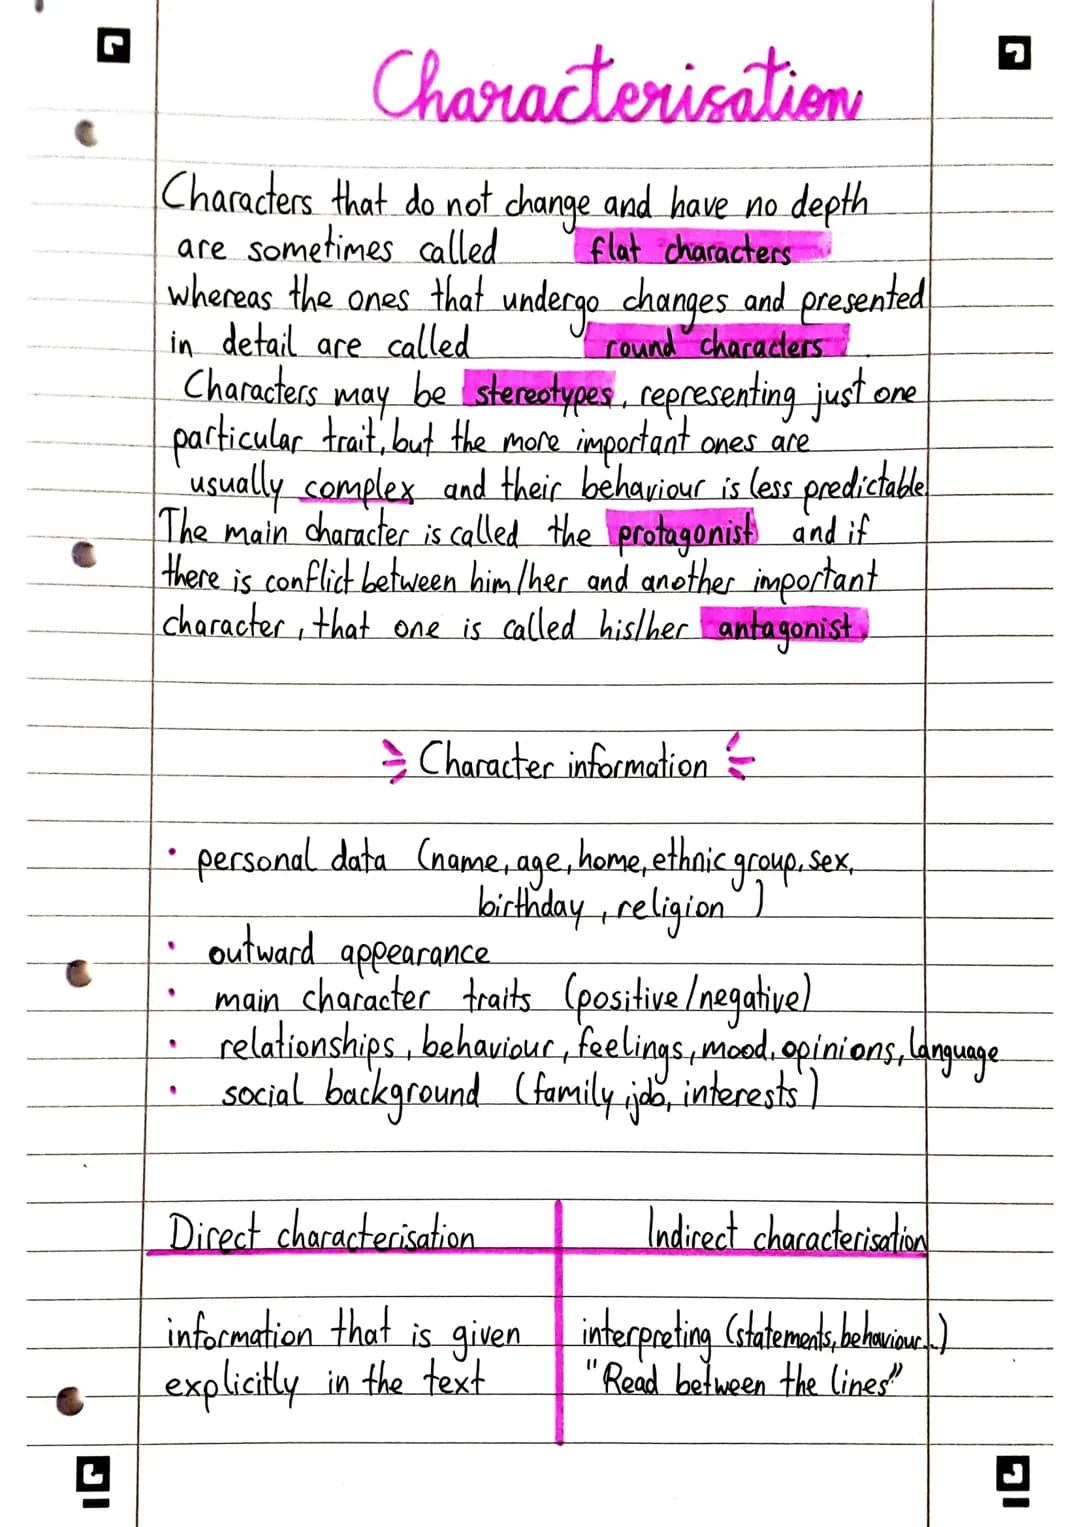 Characterisation
Characters that do not change and have no depth
are sometimes called flat characters
whereas the ones that undergo changes and presented
in detail are called round characters.
Characters may be stereotypes, representing just one
particular trait, but the more important ones are
usually complex and their behaviour is less predictable.
The main character is called the protagonist and if
there is conflict between him/her and another important
character, that one is called his/her antagonist.
Character information
• personal data (name, age, home, ethnic group, sex,
birthday, religion)
• outward appearance
• main character traits (positive/negative)
• relationships, behaviour, feelings, mood, opinions, language
• social background (family, job, interests)
Direct characterisation
information that is given
explicitly in the text
Indirect characterisation
interpreting (statements, behaviour...)
"Read between the lines"